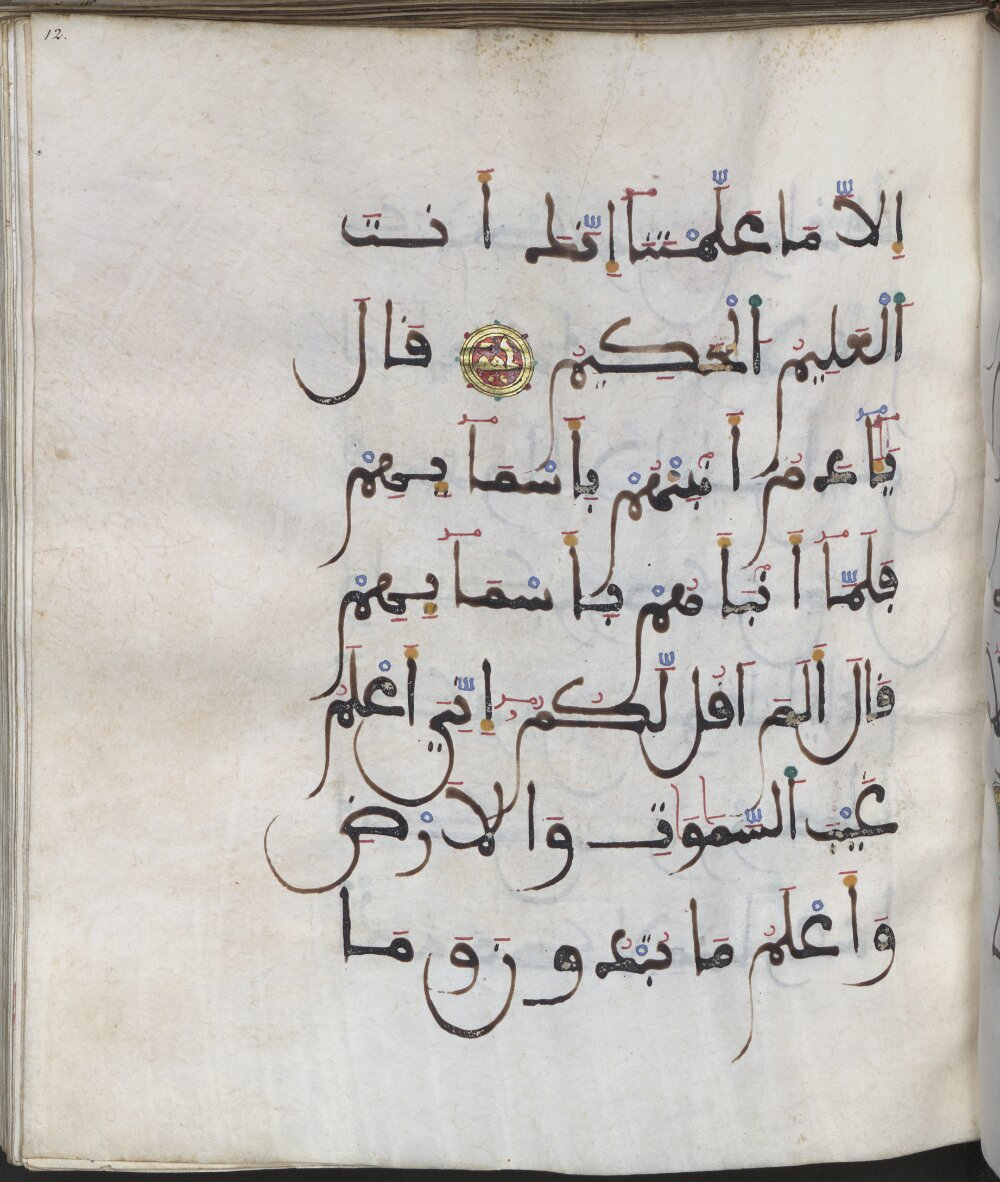 12.
إِلَّا مَا عَلَّمْتَنَآ إِنَّكَ أَنتَ
اَ۬لْعَلِيمُ اُ۬لْحَكِيمُ قَالَ
يَٰٓـَٔادَمُ أَنۢبِئْهُم بِأَسْمَآئِهِمْ
فَلَمَّآ أَنۢبَأَهُم بِأَسْمَآئِهِمْ
قَالَ أَلَمْ أَقُل لَّكُمُۥٓ إِنِّيَ أَعْلَمُ
غَيْبَ اَ۬لسَّمَٰوَٰتِ وَالَارْضِ
وَأَعْلَمُ مَا تُبْدُونَ وَمَا